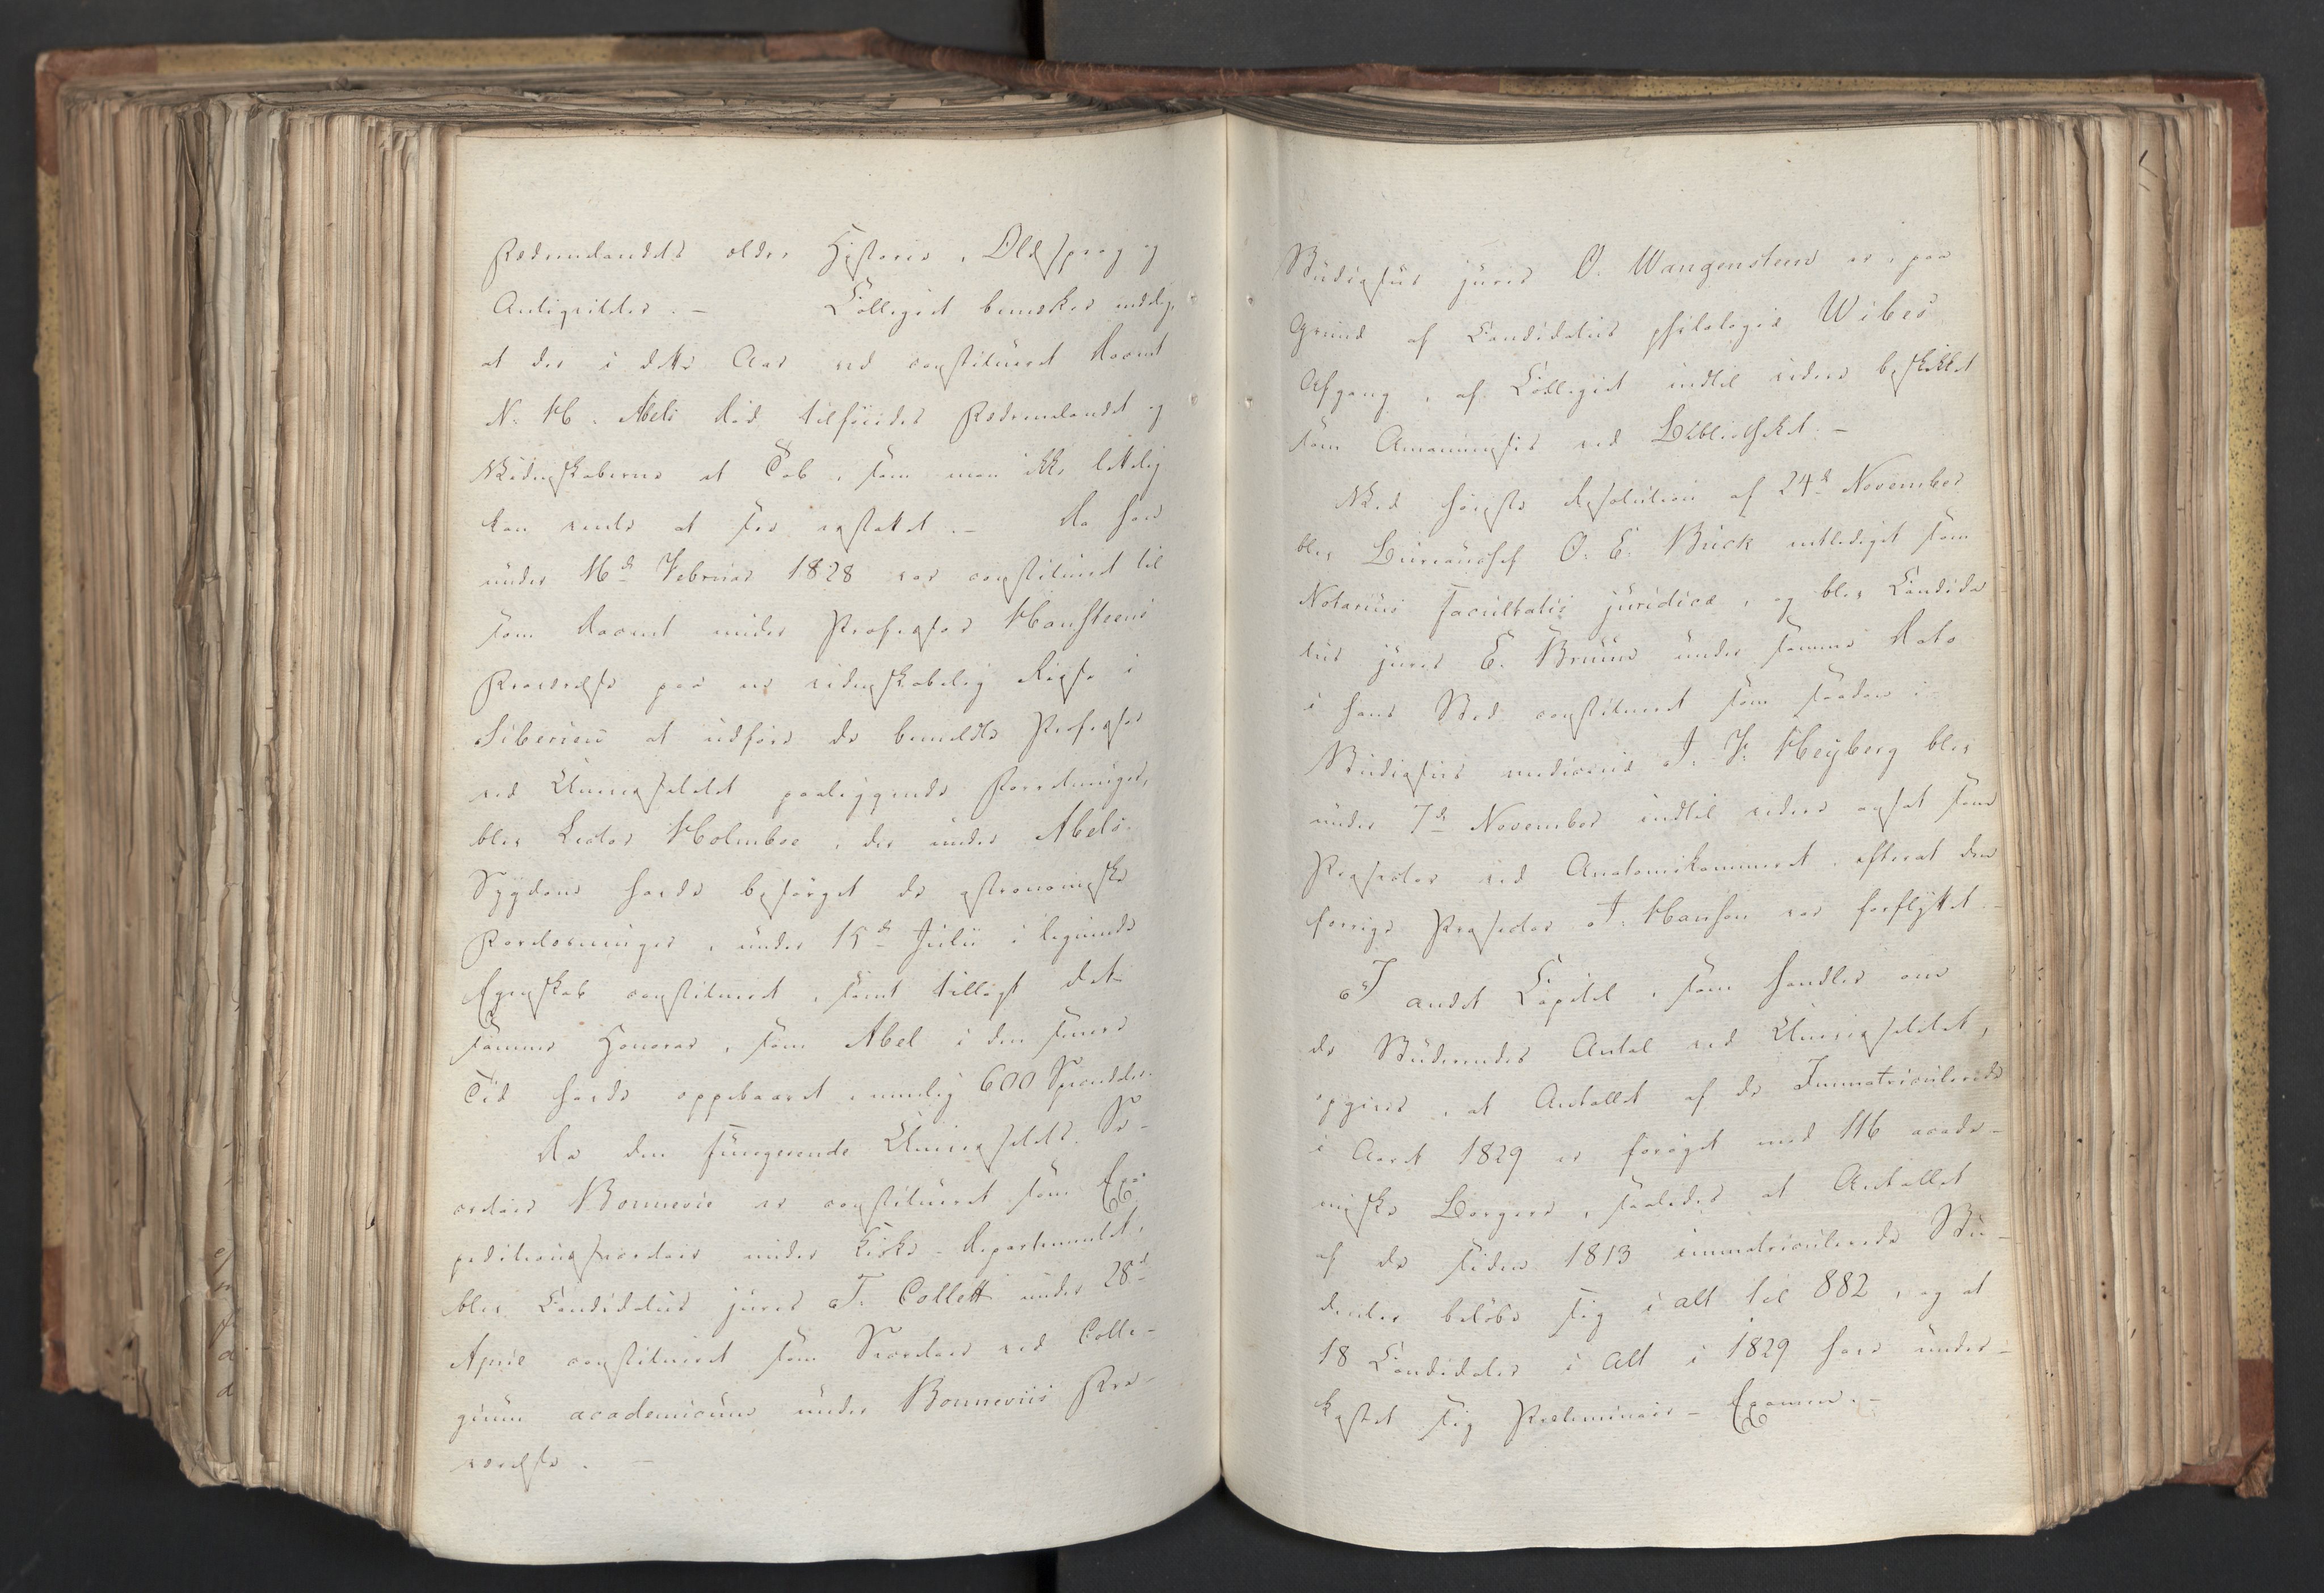 Fædrenelandets ældre Historie, Oldsprog og
Antiqviteter. – Collegiet bemærker endelig,
at der i dette Aar ved constitueret Docent
N. H. Abels Død tilføiedes Fædrenelandet og
Videnskaberne et Tab, som man ikke letteligen
kan vente at see erstattet. – Da han
under 16d Februar 1828 var constitueret til
som Docent under Professor Hansteens
Fraværelse paa en videnskabelig Reise i
Siberien at udføre de bemeldte Professor
ved Universitetet paaliggende Forretninger,
blev Lector Holmboe, der under Abels
Sygdom havde besørget de astronomiske
Forelæsninger, under 15d Julii i lignende
Egenskab constitueret, samt tillagt det
samme Honorar, som Abel i den senere
Tid havde oppebaaret, nemlig 600 Speciedaler.
Da den fungerende Universitets Se-
cretair Bonnevie er constitueret som Ex-
peditionssecretair under Kirke-Departementet,
blev Candidatus juris J. Collett under 28d
April constitueret som Secretair ved Colle-
gium academicum under Bonnevies Fra-
værelse. –
Studiosus juris O. Wangensteen er, paa
Grund af Candidatus philologiæ Wibes
Afgang, af Collegiet indtil videre beskikket
som Amanuensis ved Bibliotheket. –
Ved høieste Resolution af 24d November
blev Bureauchef O. E. Buck entlediget som
Notarius facultatis juridicæ, og blev Candida-
tus juris E. Bruun under samme Dato
i hans Sted constitueret som saadan.
Studiosus medicinæ J. F. Heyberg blev
under 7d November indtil videre ansat som
Prosector ved Anatomikammeret, efterat den
forrige Prosector J. Hansen var fraflyttet. –
I andet Capitel, som handler om
de Studerendes Antal ved Universitetet,
opgives, at Antallet af de Immatriculerede
i Aaret 1829 er forøget med 116 acade-
miske Borgere, saaledes at Antallet
af de siden 1813 immatriculerede Stu-
denter beløbe sig i alt til 882, og at
18 Candidater i Alt i 1829 have under-
kastet sig Præliminair-Examen. –